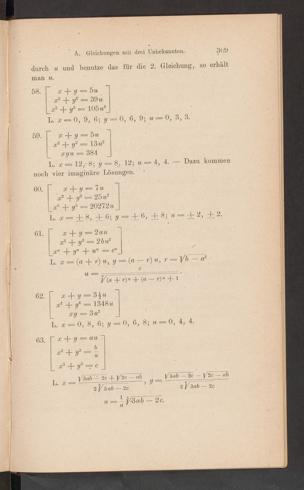 A. Gleichungen mit drei Unbekannten. 369
durch u und benutze das für die 2. Gleichung, so erhält
man u.
58. x + y = 5u
x² + y² = 39u
x³ + y³ = 105u²
L. x = 0, 9, 6; y = 0, 6, 9; u = 0, 3, 3.
59. x + y = 5u
x² + y² = 13u²
xyu = 384
L. x = 12, 8; y = 8, 12; u = 4, 4. — Dazu kommen
noch vier imaginäre Lösungen.
60. x + y = 7u
x² + y² = 25u²
= 20272u
L. x = ± 8, ± 6; y = ± 6, ± 8; u = ± 2, ± 2.
61. x + y = 2au
x² + y² = 2bu²
L. x = (a + r) u, y = (a − r) u, r = √b − a²
u =
62. x + y = 3½u
= 1348u
xy = 3u²
L. x = 0, 8, 6; y = 0, 6, 8; u = 0, 4, 4.
63. x + y = au
x² + y² = b/u
x³ + y³ = c
L. x = , y =
u = 1/a ∛3ab − 2c.